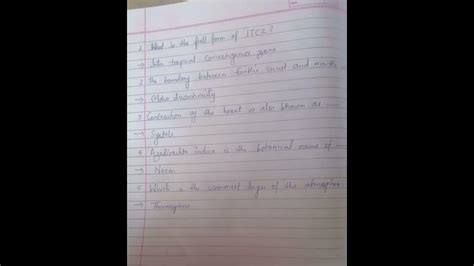 1. What is the full form of ITCZ?
→ Inter tropical convergence zone
2. The boundary between Earth's crust and mantle
→ Moho discontinuity
3. Contraction of the heart is also known as
→ Systole
4. Azadirachta indica is the botanical name of
→ Neem
5. Which is the warmest layer of the atmosphere
→ Thermosphere